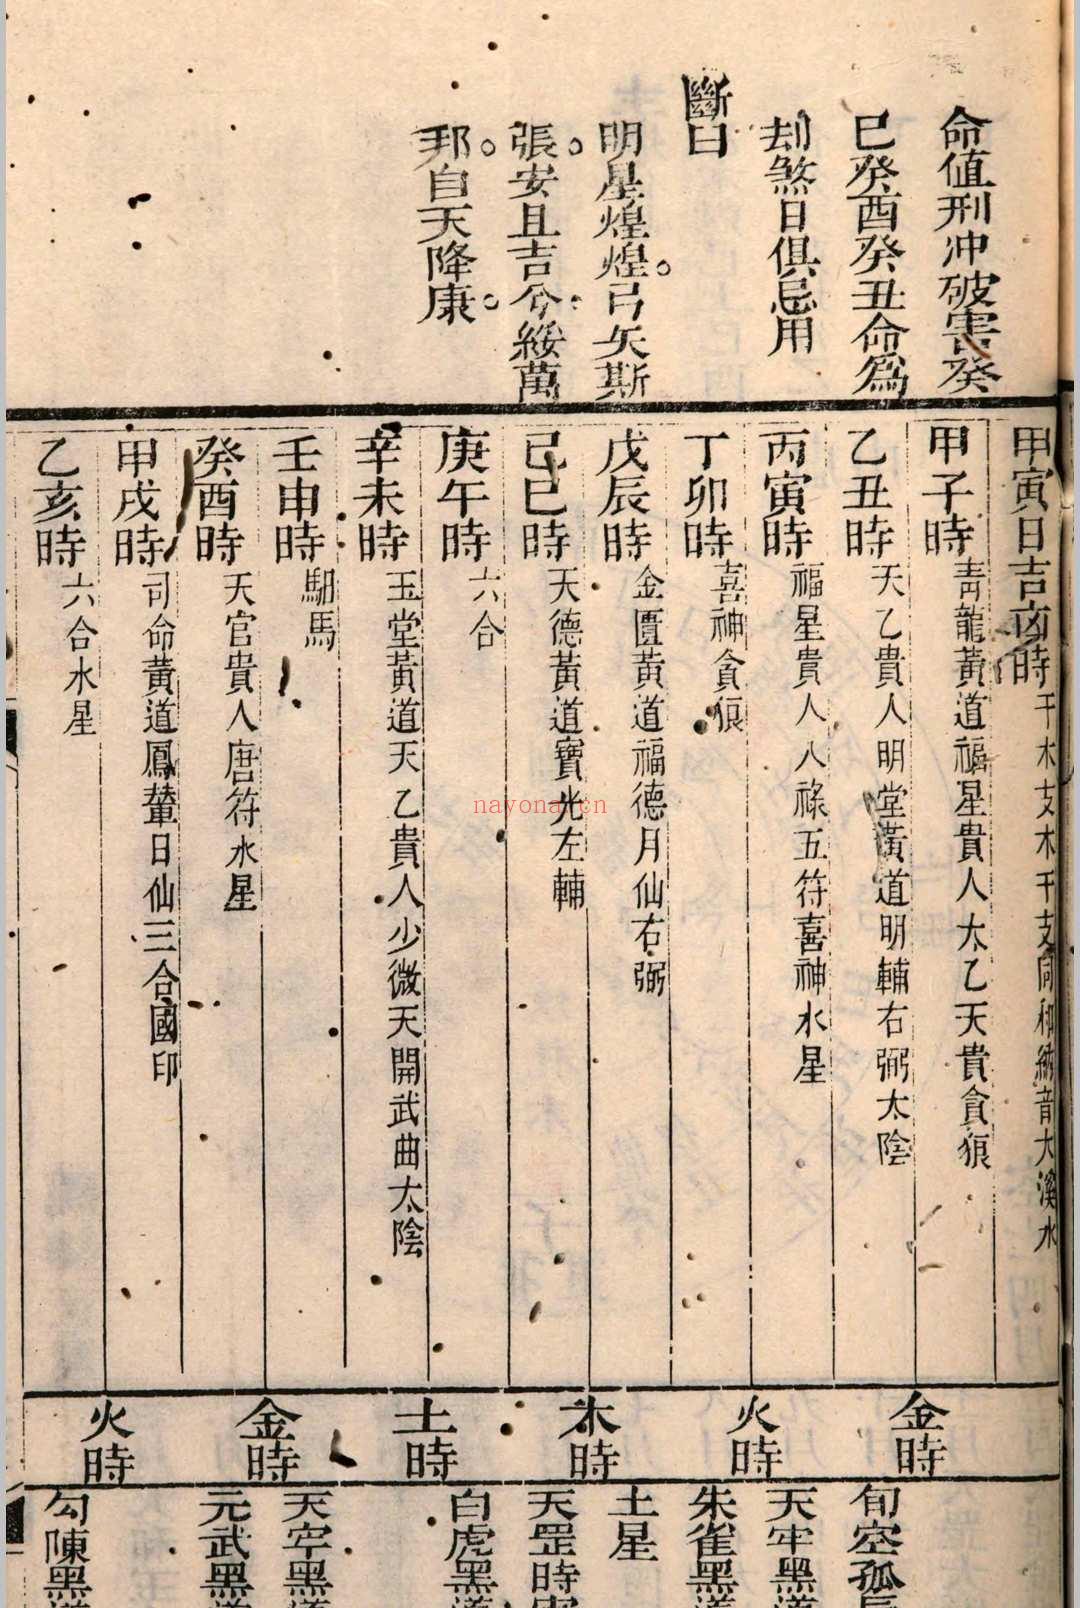 命值刑冲破害癸
巳癸酉癸丑命爲
刼煞日俱忌用
斷曰
明星煌煌。弓矢斯
張。安且吉兮。綏萬
邦。自天降康。
甲寅日吉凶時 干木支木干支同和納音大溪水
甲子時 青龍黃道福星貴人太乙天貴貪狼
乙丑時 天乙貴人明堂黃道明輔右弼太陰
丙寅時 福星貴人八祿五符喜神水星
丁卯時 喜神貪狼
戊辰時 金匱黃道福德月仙右弼
己巳時 天德黃道寶光左輔
庚午時 六合
辛未時 玉堂黃道天乙貴人少微天開武曲太陰
壬申時 馹馬
癸酉時 天官貴人唐符水星
甲戌時 司命黃道鳳輦日仙三合國印
乙亥時 六合水星
金時
火時
木時
土時
金時
火時
旬空孤辰
天牢黑道
朱雀黑道
土星
天罡時害
白虎黑道
天牢黑道
元武黑道
勾陳黑道
nayona.cn